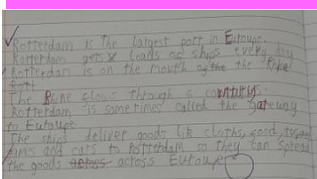 Rotterdam is the largest port in Euroupe.
Rotterdam gets loads of ships every day
Rotterdam is on the mouth of the
The Rhine flows through 6
Rotterdam is some times called the gateway
to Euroupe
The ships deliver goods lik cloths, food,
and cars to Rotterdam so they can spread
the goods across Euroupe